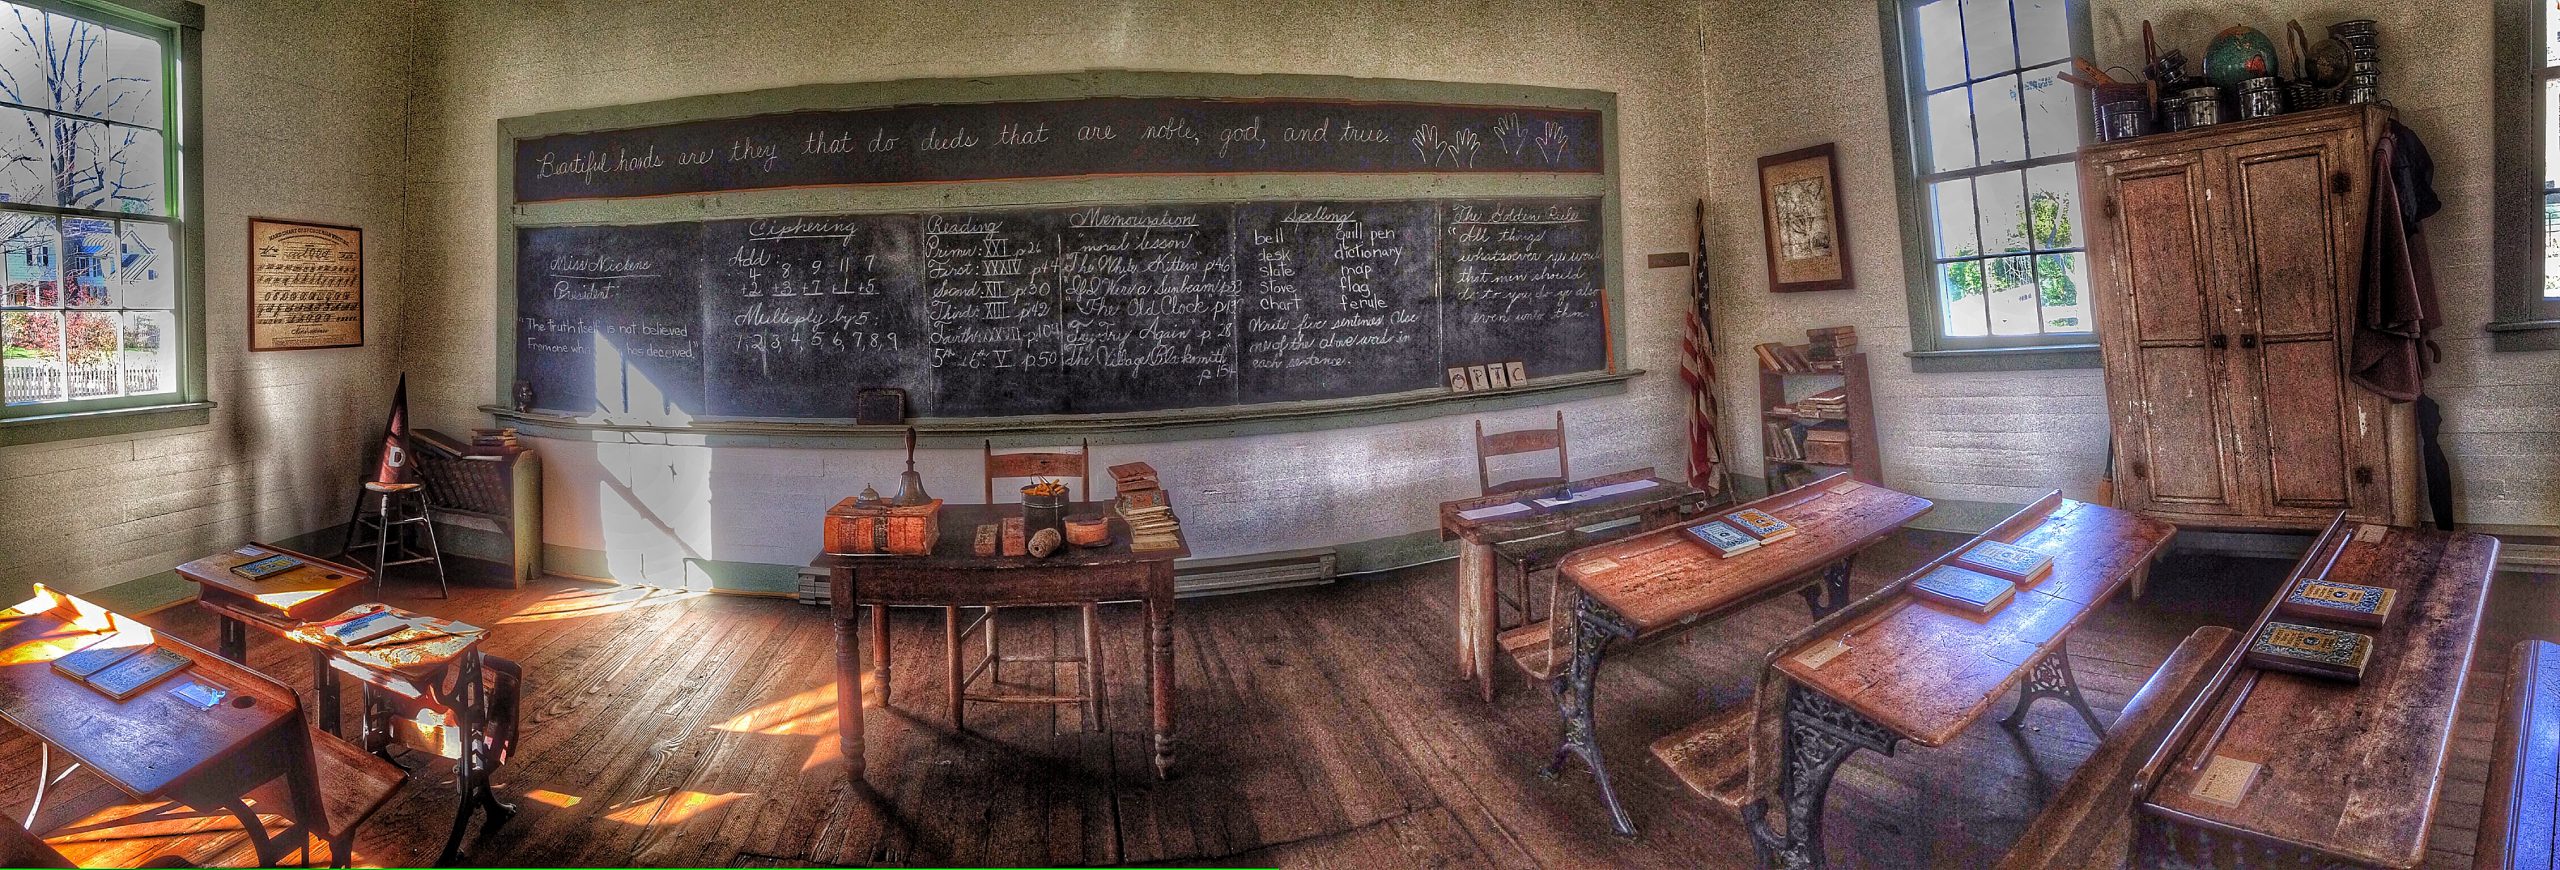 Beautiful hands are they that do deeds that are noble, god, and true.
Miss Nickens
President:
"The truth itself is not believed
From one who has deceived"
Ciphering
Add:
4 8 9 11 7
+2 +3 +7 +1 +5
Multiply by 5:
1, 2, 3, 4, 5, 6, 7, 8, 9
Reading
Primer: XVI p26
First: XXXIV p44
Second: XII p30
Third: XIII p42
Fourth: p104
5th + 6th: V p.50
Memorization
"moral lesson"
"The White Kitten" p46
"If I Were a Sunbeam" p53
"The Old Clock" p13
"Try Try Again" p 28
The Village Blacksmith
p 154
Spelling
bell quill pen
desk dictionary
slate map
stove flag
chart ferule
Write five sentences. Use
one of the above words in
each sentence.
"The Golden Rule
"All things
whatsoever ye would
that men should
do to you do ye also
even unto them"
O P T C
D